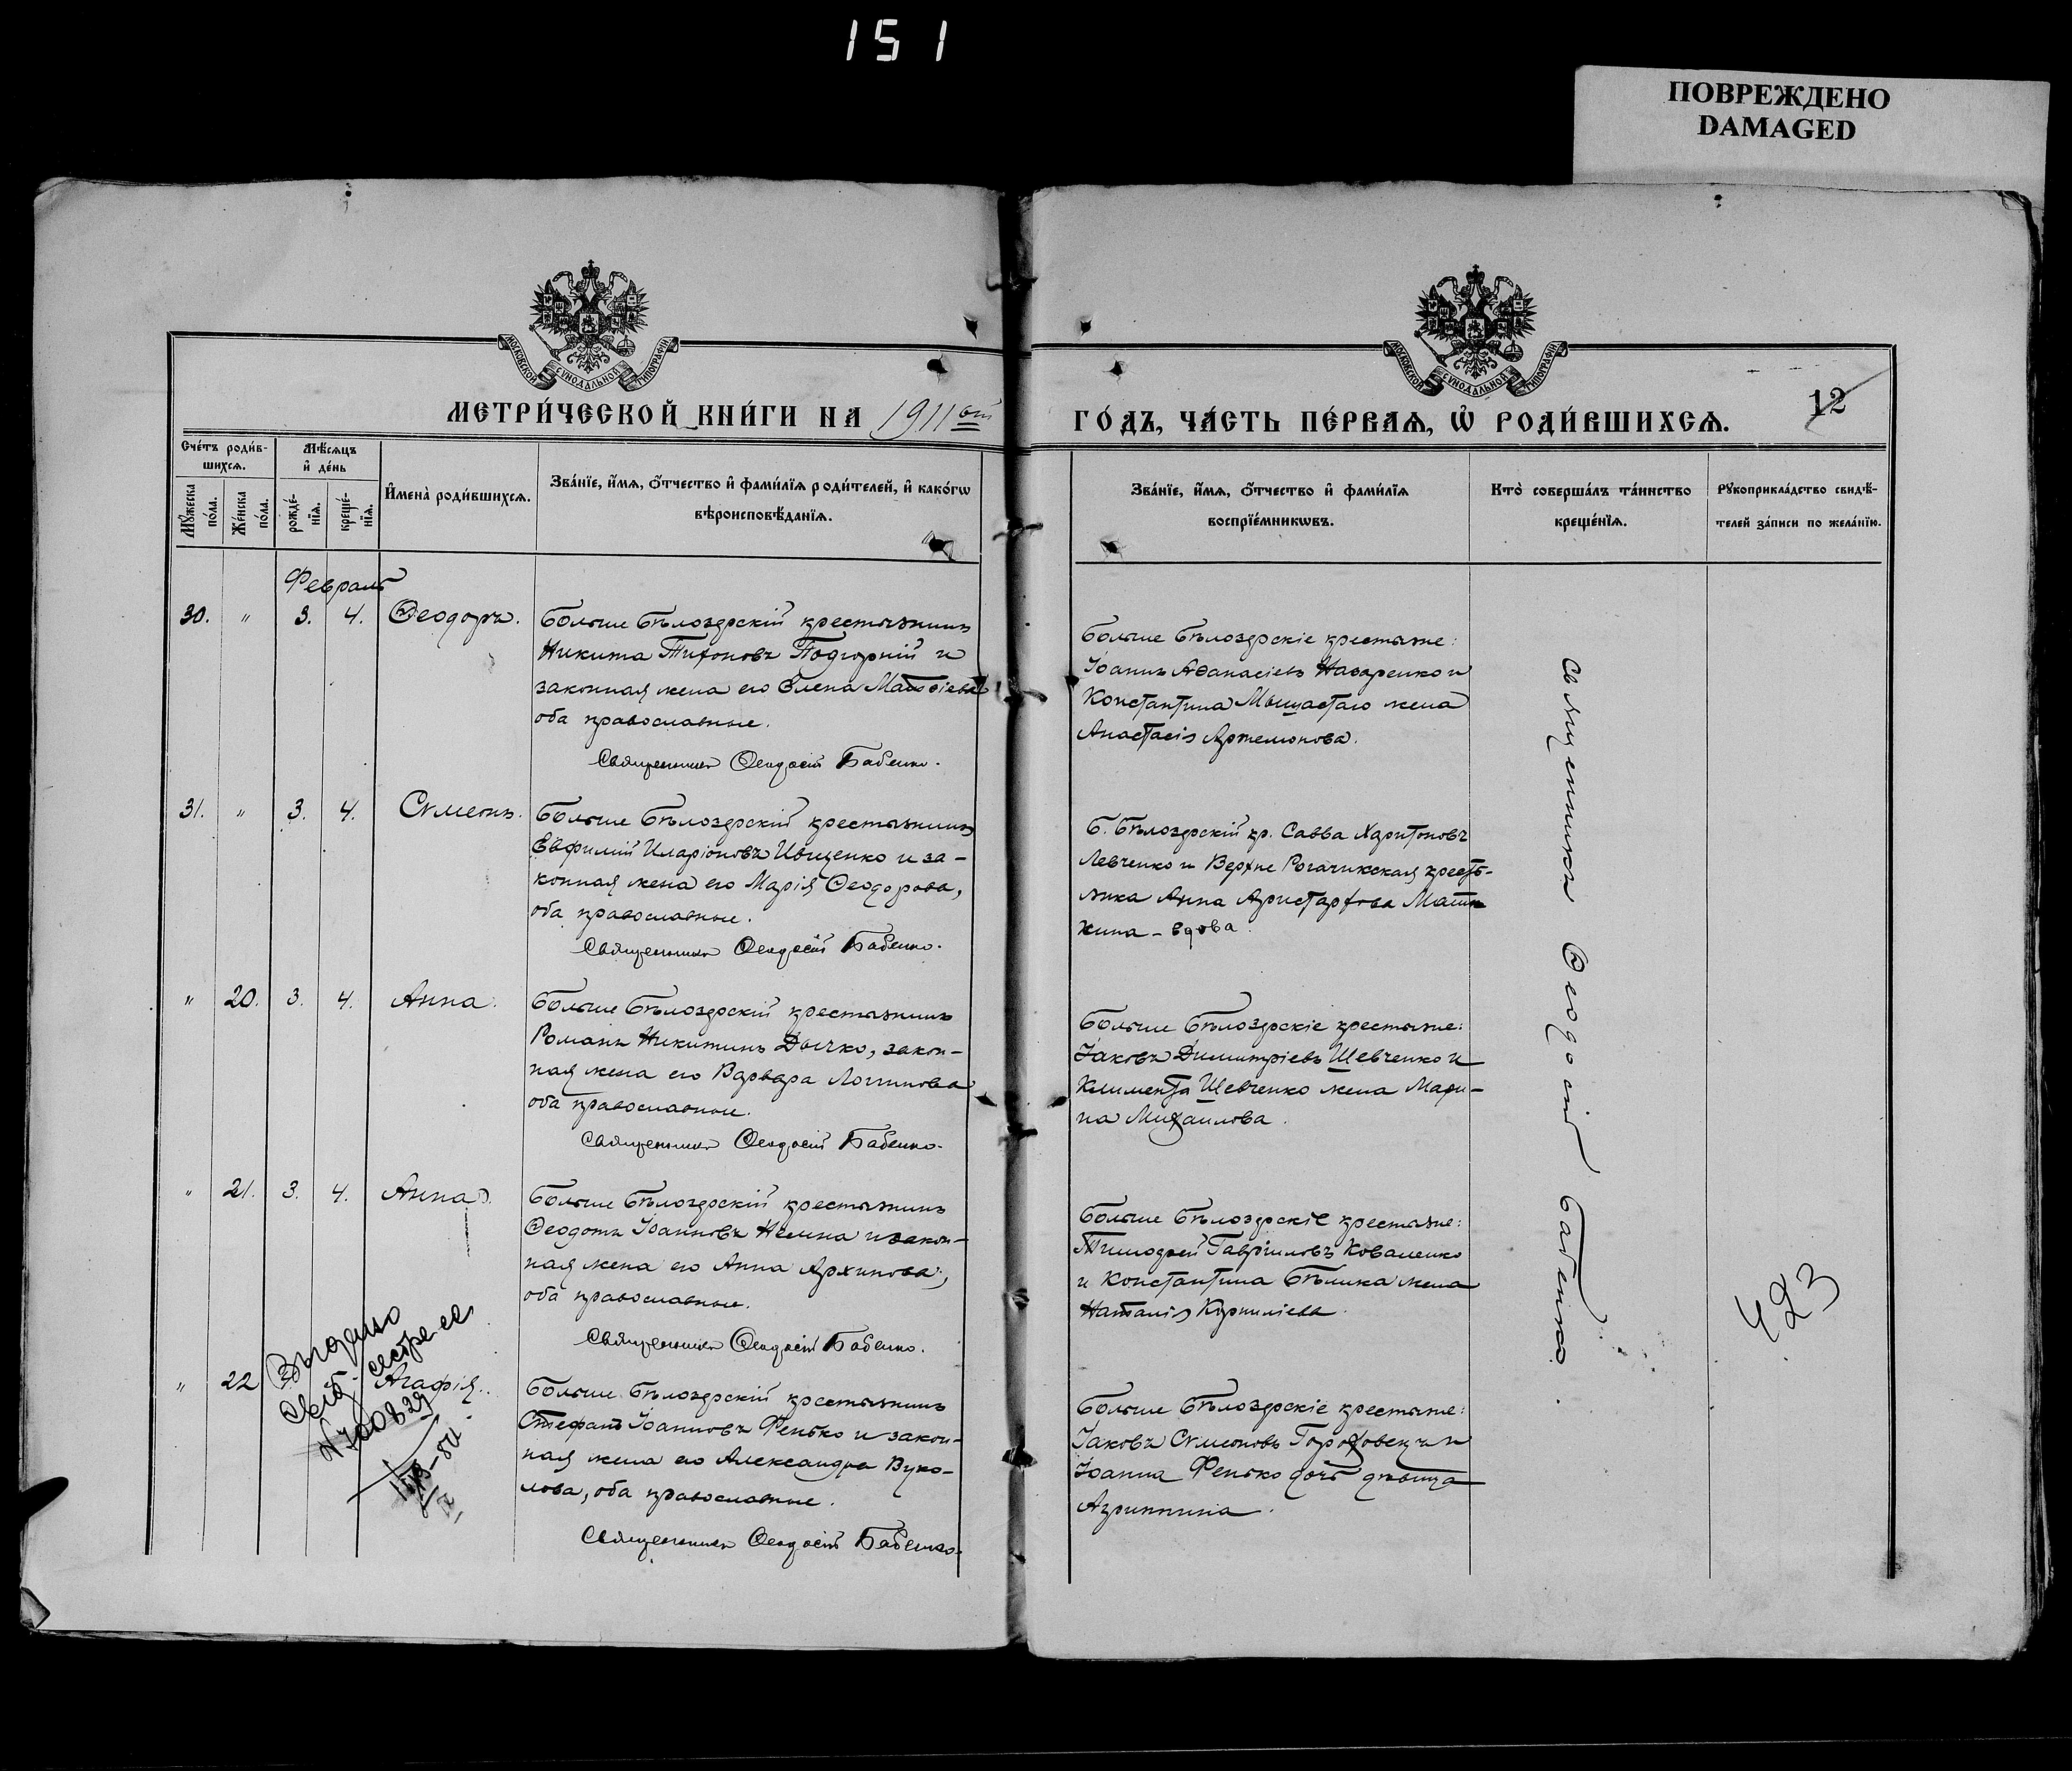 151
ПОВРЕЖДЕНО
DAMAGED
МОСКОВСКОЙ СѴНОДАЛЬНОЙ ТИПОГРАФІИ
МОСКОВСКОЙ СѴНОДАЛЬНОЙ ТИПОГРАФІИ
МЕТРИ́ЧЕСКОЙ КНИ́ГИ НА 1911 ый
ГО́ДЪ, ЧА́СТЬ ПЕ́РВАѦ, Ѡ҆ РОДИ́ВШИХСѦ.
12
Сче́тъ роди́в-
шихсѧ.
Мѣ́сѧцъ
и҆ де́нь
Мꙋ́жеска
по́ла.
Же́нска
по́ла.
рожде́-
нїѧ.
креще́-
нїѧ.
И҆мена̀ роди́вшихсѧ.
Зва́нїе, и҆́мѧ, ѻ҆́тчество и҆ фами́лїѧ роди́телей, и҆ како́гѡ
вѣроисповѣ́данїѧ.
Зва́нїе, и҆́мѧ, ѻ҆́тчество и҆ фами́лїѧ
воспрїе́мникѡвъ.
Кто̀ соверша́лъ та́инство
креще́нїѧ.
Рꙋкоприкла́дство свидѣ́-
телей за́писи по жела́нїю.
Февраль
30. " 3. 4. Ѳеодоръ.
Больше Бѣлозерскій крестьянинъ
Никита Тихоновъ Подгорный и
законная жена его Елена Матѳіева
оба православные.
Священникъ Ѳеодосій Бабенко.
Больше Бѣлозерскіе крестьяне:
Іоаннъ Аѳанасіевъ Назаренко и
Константина Мышастаго жена
Анастасія Артемонова.
31. " 3. 4. Сѵмеонъ.
Больше Бѣлозерскій крестьянинъ
Евфимій Иларіоновъ Ивщенко и за-
конная жена его Марія Ѳеодорова,
оба православные.
Священникъ Ѳеодосій Бабенко.
Б. Бѣлозерскій кр. Савва Харитоновъ
Левченко и Верхне Рогачикская кресть-
янка Анна Аристархова
вдова.
" 20. 3. 4. Анна.
Больше Бѣлозерскій крестьянинъ
Романъ Никитинъ Дычко, закон-
ная жена его Варвара Логинова
оба православные.
Священникъ Ѳеодосій Бабенко.
Больше Бѣлозерскіе крестьяне:
Іаковъ Димитріевъ Шевченко и
Климента Шевченко жена Мари-
на Михаилова.
" 21. 3. 4. Анна.
Больше Бѣлозерскій крестьянинъ
Ѳеодотъ Іоанновъ и закон-
ная жена его Анна Архипова,
оба православные.
Священникъ Ѳеодосій Бабенко.
Больше Бѣлозерскіе крестьяне:
Тимоѳей Гавріиловъ Коваленко
и Константина Бѣлика жена
Наталія Корниліева.
" 22 Агафія.
Больше Бѣлозерскій крестьянинъ
Стефанъ Іоанновъ Фенько и закон-
ная жена его Александра Вуко-
лова, оба православные.
Священникъ Ѳеодосій Бабенко.
Больше Бѣлозерскіе крестьяне:
Іаковъ Сѵмеоновъ Гороховецъ и
Іоанна Фенько дочь дѣвица
Агриппина.
Выдано
сестре ее
Священникъ Ѳеодосій Бабенко.
423